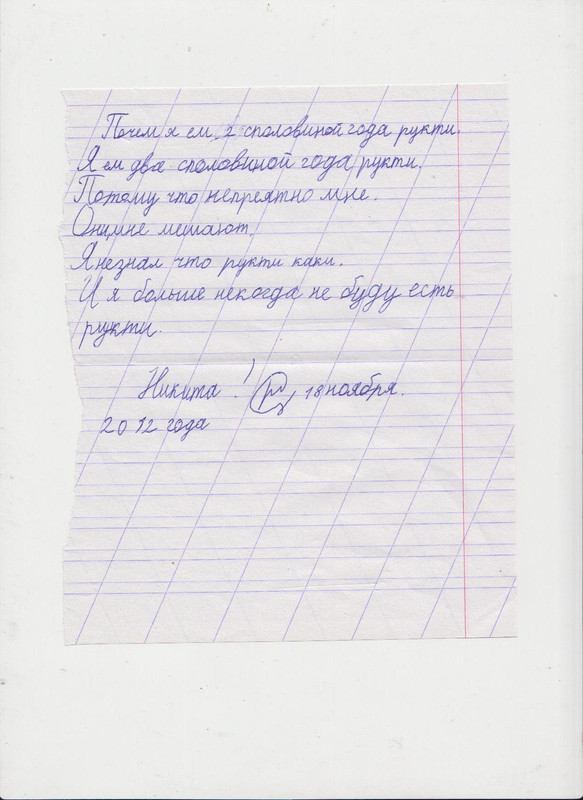 Почем я ем 2 споловиной года рукти.
Я ем два споловиной года рукти.
Потому что непреятно мне.
Они мне мешают.
Я незнал что рукти каки.
И я больше некогда не буду есть
рукти.
Никита! 18 ноября.
2012 года